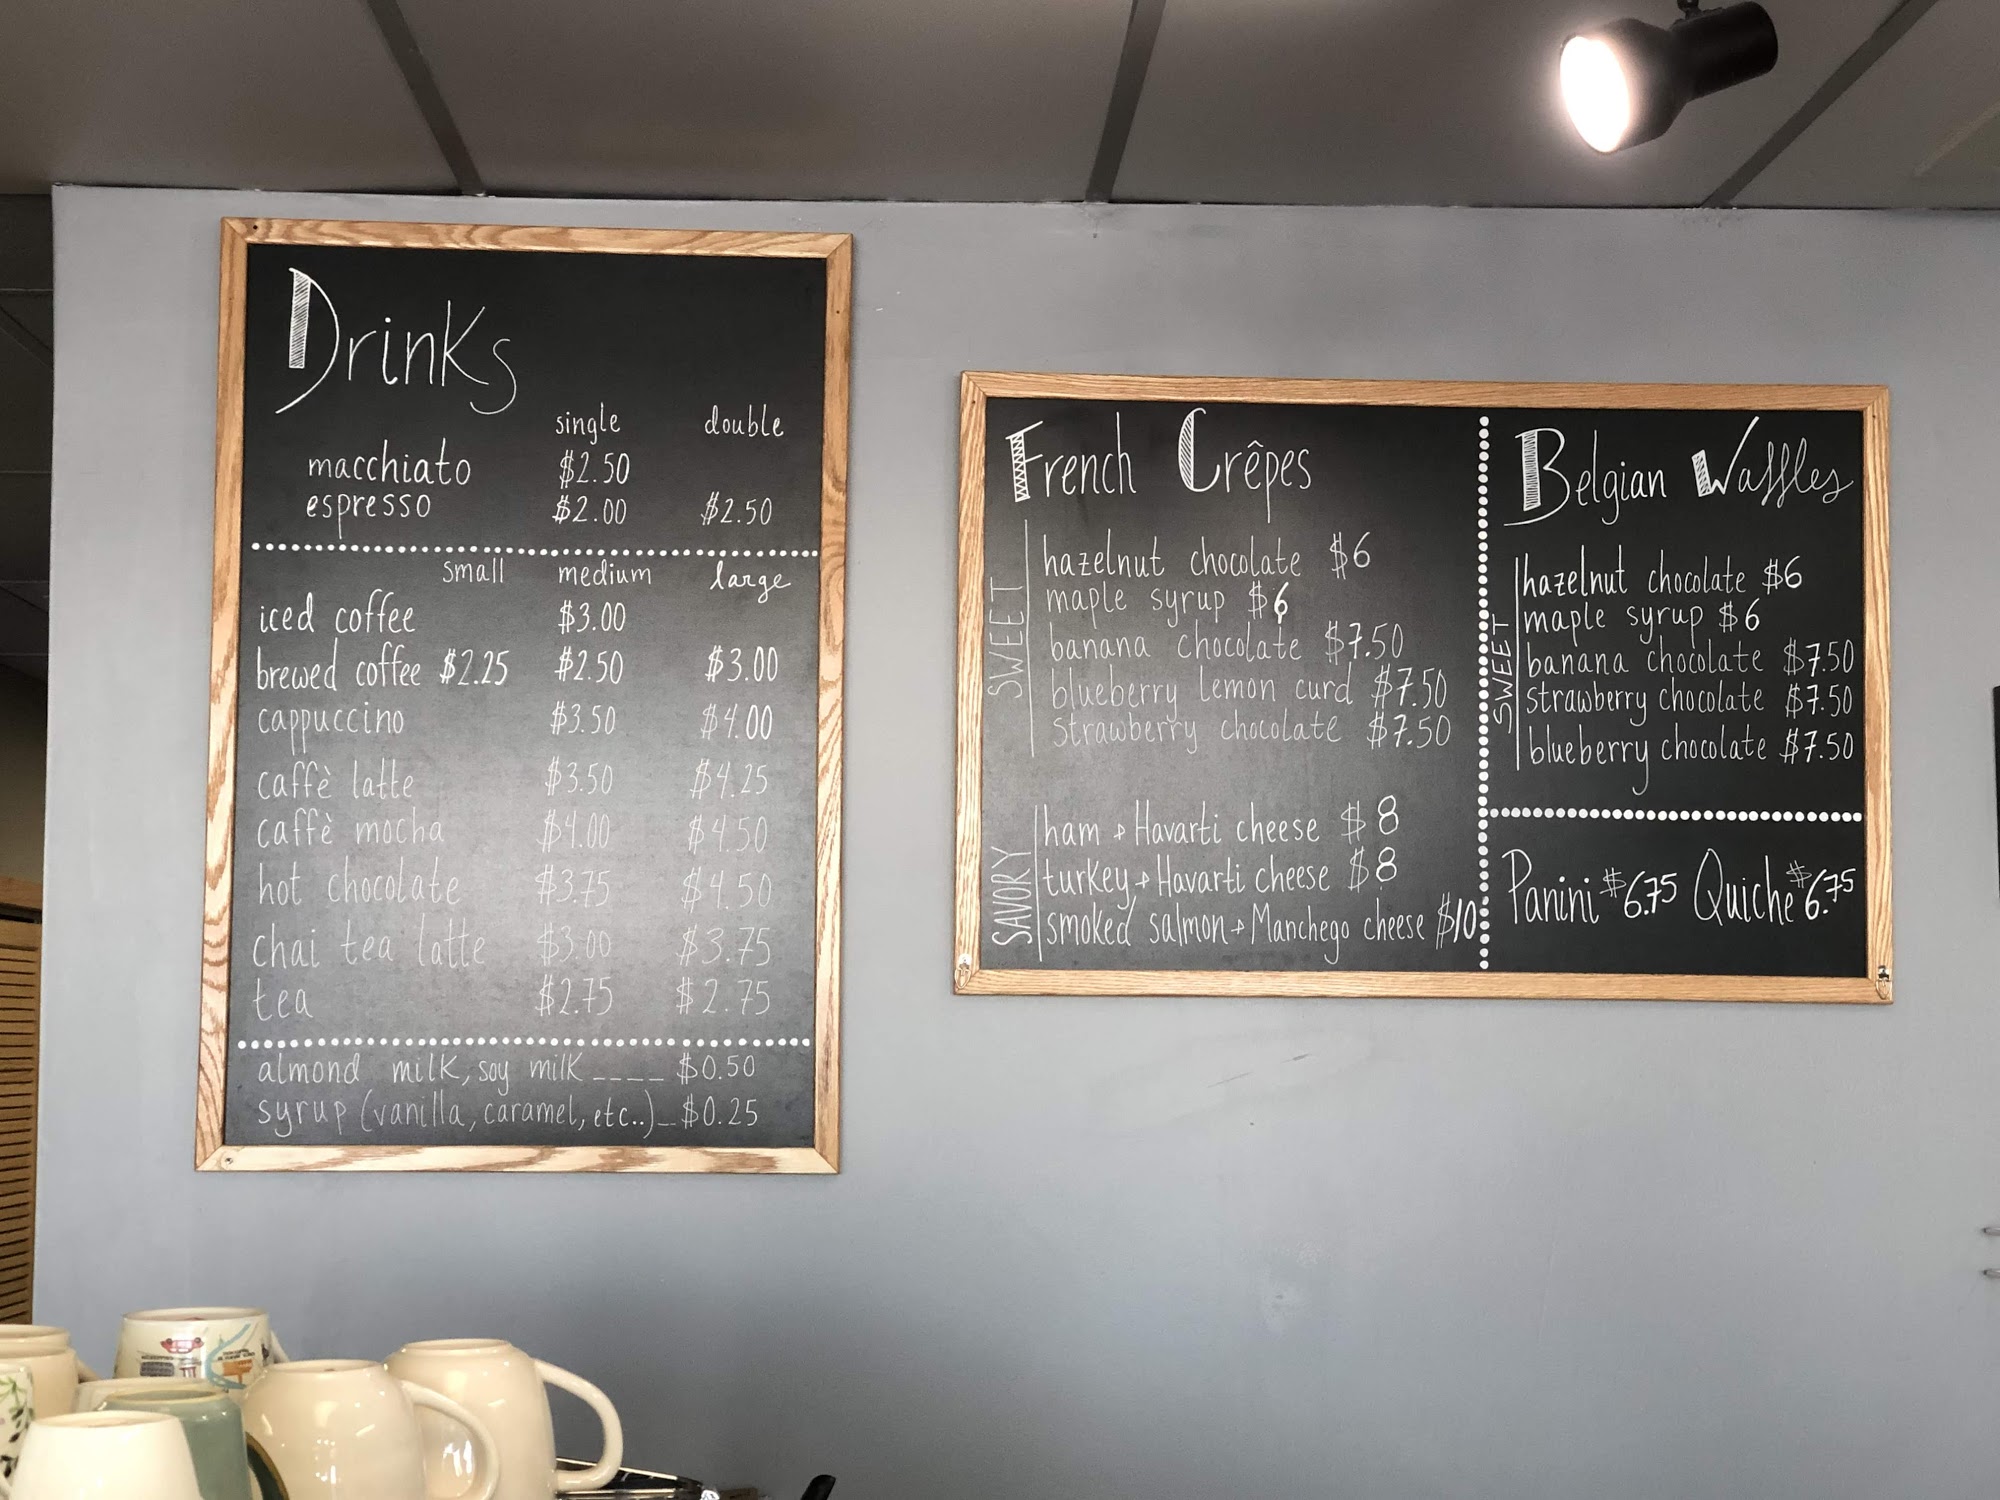 Drinks
single double
macchiato $2.50
espresso $2.00 $2.50
small medium large
iced coffee $3.00
brewed coffee $2.25 $2.50 $3.00
cappuccino $3.50 $4.00
caffè latte $3.50 $4.25
caffè mocha $4.00 $4.50
hot chocolate $3.75 $4.50
chai tea latte $3.00 $3.75
tea $2.75 $2.75
almond milk, soy milk ____ $0.50
syrup (vanilla, caramel, etc..)_ $0.25
French Crêpes
SWEET
hazelnut chocolate $6
maple syrup $6
banana chocolate $7.50
blueberry lemon curd $7.50
strawberry chocolate $7.50
SAVORY
ham + Havarti cheese $8
turkey + Havarti cheese $8
smoked salmon + Manchego cheese $10
Belgian Waffles
SWEET
hazelnut chocolate $6
maple syrup $6
banana chocolate $7.50
strawberry chocolate $7.50
blueberry chocolate $7.50
Panini $6.75 Quiche $6.75